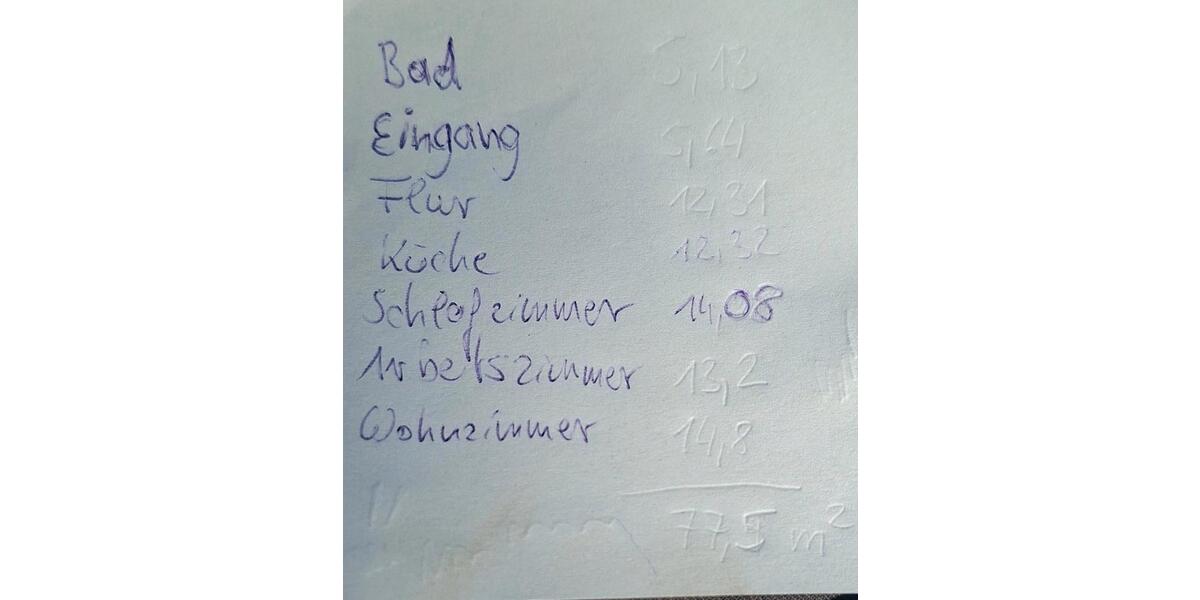 Bad 5,13
Eingang 5,64
Flur 12,31
Küche 12,32
Schlafzimmer 14,08
Arbeitszimmer 13,2
Wohnzimmer 14,8
77,5 m²